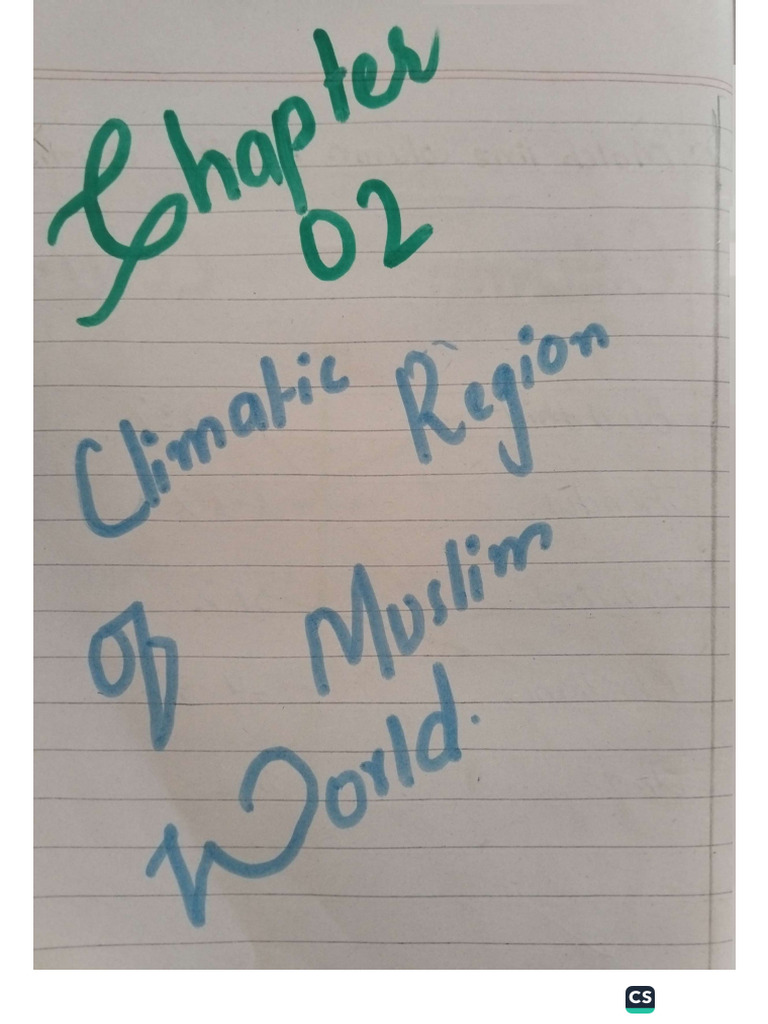 Chapter
02
Climatic Region
of Muslim
World.
CS